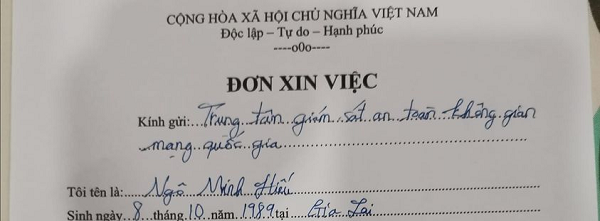 CỘNG HÒA XÃ HỘI CHỦ NGHĨA VIỆT NAM
Độc lập – Tự do – Hạnh phúc
----o0o----
ĐƠN XIN VIỆC
Kính gửi:...Trung tâm giám sát an toàn không gian
mạng quốc gia
Tôi tên là:...Ngô Minh Hiếu
Sinh ngày 8 tháng 10 năm 1989 tại Gia Lai